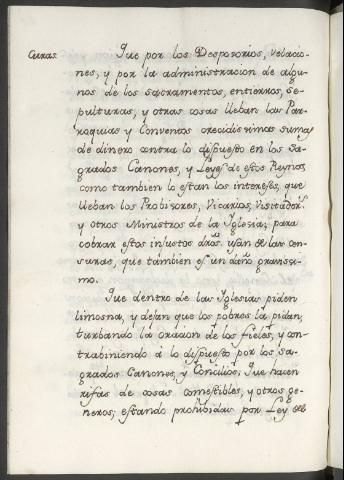 Curas.
Que por los Desposorios, velacio-
nes, y por la administracion de algu-
nos de los sacramentos, entierros, se-
pulturas, y otras cosas lleban las Par-
roquias y Conventos crecidisimas sumas
de dinero contra lo dispuesto en los Sa-
grados Canones, y Leyes de estos Reynos,
como tambien lo estan los intereses, que
lleban los Probisores, Vicarios, Visitadors.
y otros Ministros de la Yglesia; para
cobrar estos injustos dros. usan de las cen-
suras, que tambien es un daño gravisi-
mo.
Que dentro de las Yglesias piden
limosna, y dejan que los pobres la pidan,
turbando la oracion de los fieles, y con-
trabiniendo à lo dispuesto por los Sa-
grados Canones, y Concilios; Que hacen
rifas de cosas comestibles, y otros ge-
neros; estando prohibidas por Ley del